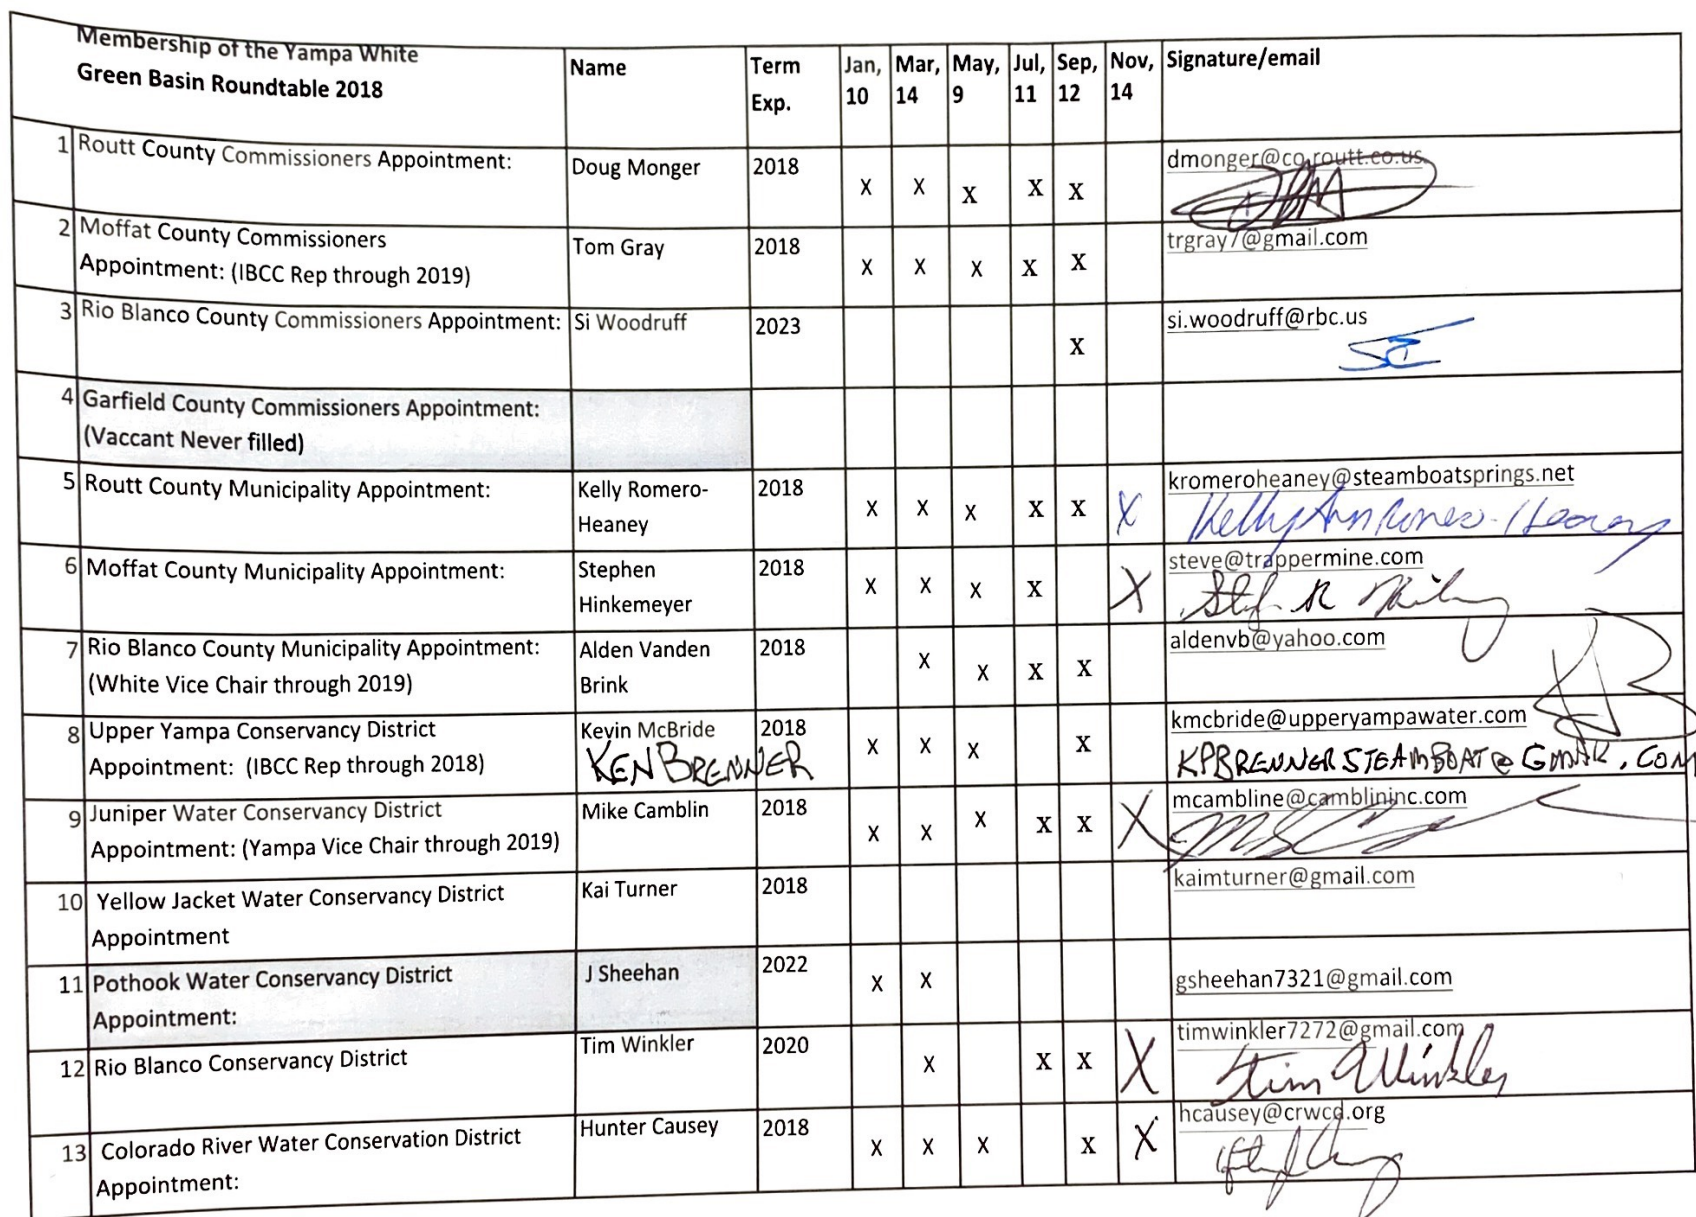 Membership of the Yampa White
Green Basin Roundtable 2018
Name
Term
Exp.
Jan,
10
Mar,
14
May,
9
Jul,
11
Sep,
12
Nov,
14
Signature/email
1 Routt County Commissioners Appointment: Doug Monger 2018 X X X X X dmonger@co.routt.co.us
2 Moffat County Commissioners
Appointment: (IBCC Rep through 2019) Tom Gray 2018 X X X X X trgray7@gmail.com
3 Rio Blanco County Commissioners Appointment: Si Woodruff 2023 X si.woodruff@rbc.us
4 Garfield County Commissioners Appointment:
(Vaccant Never filled)
5 Routt County Municipality Appointment: Kelly Romero-
Heaney 2018 X X X X X X kromeroheaney@steamboatsprings.net
Kelly Ann Romero-Heaney
6 Moffat County Municipality Appointment: Stephen
Hinkemeyer 2018 X X X X X steve@trappermine.com
7 Rio Blanco County Municipality Appointment:
(White Vice Chair through 2019) Alden Vanden
Brink 2018 X X X X aldenvb@yahoo.com
8 Upper Yampa Conservancy District
Appointment: (IBCC Rep through 2018) Kevin McBride 2018 X X X X kmcbride@upperyampawater.com
KEN BRENNER KPBRENNERSTEAMBOAT@GMAIL.COM
9 Juniper Water Conservancy District
Appointment: (Yampa Vice Chair through 2019) Mike Camblin 2018 X X X X X X mcambline@camblininc.com
10 Yellow Jacket Water Conservancy District
Appointment Kai Turner 2018 kaimturner@gmail.com
11 Pothook Water Conservancy District
Appointment: J Sheehan 2022 X X gsheehan7321@gmail.com
12 Rio Blanco Conservancy District Tim Winkler 2020 X X X X timwinkler7272@gmail.com
Tim Winkler
13 Colorado River Water Conservation District
Appointment: Hunter Causey 2018 X X X X X hcausey@crwcd.org